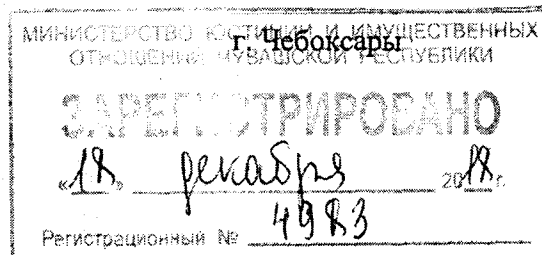 МИНИСТЕРСТВО ЮСТИЦИИ И ИМУЩЕСТВЕННЫХ
г. Чебоксары
ОТНОШЕНИЙ ЧУВАШСКОЙ РЕСПУБЛИКИ
ЗАРЕГИСТРИРОВАНО
«18» декабря 2018 г.
Регистрационный № 4983